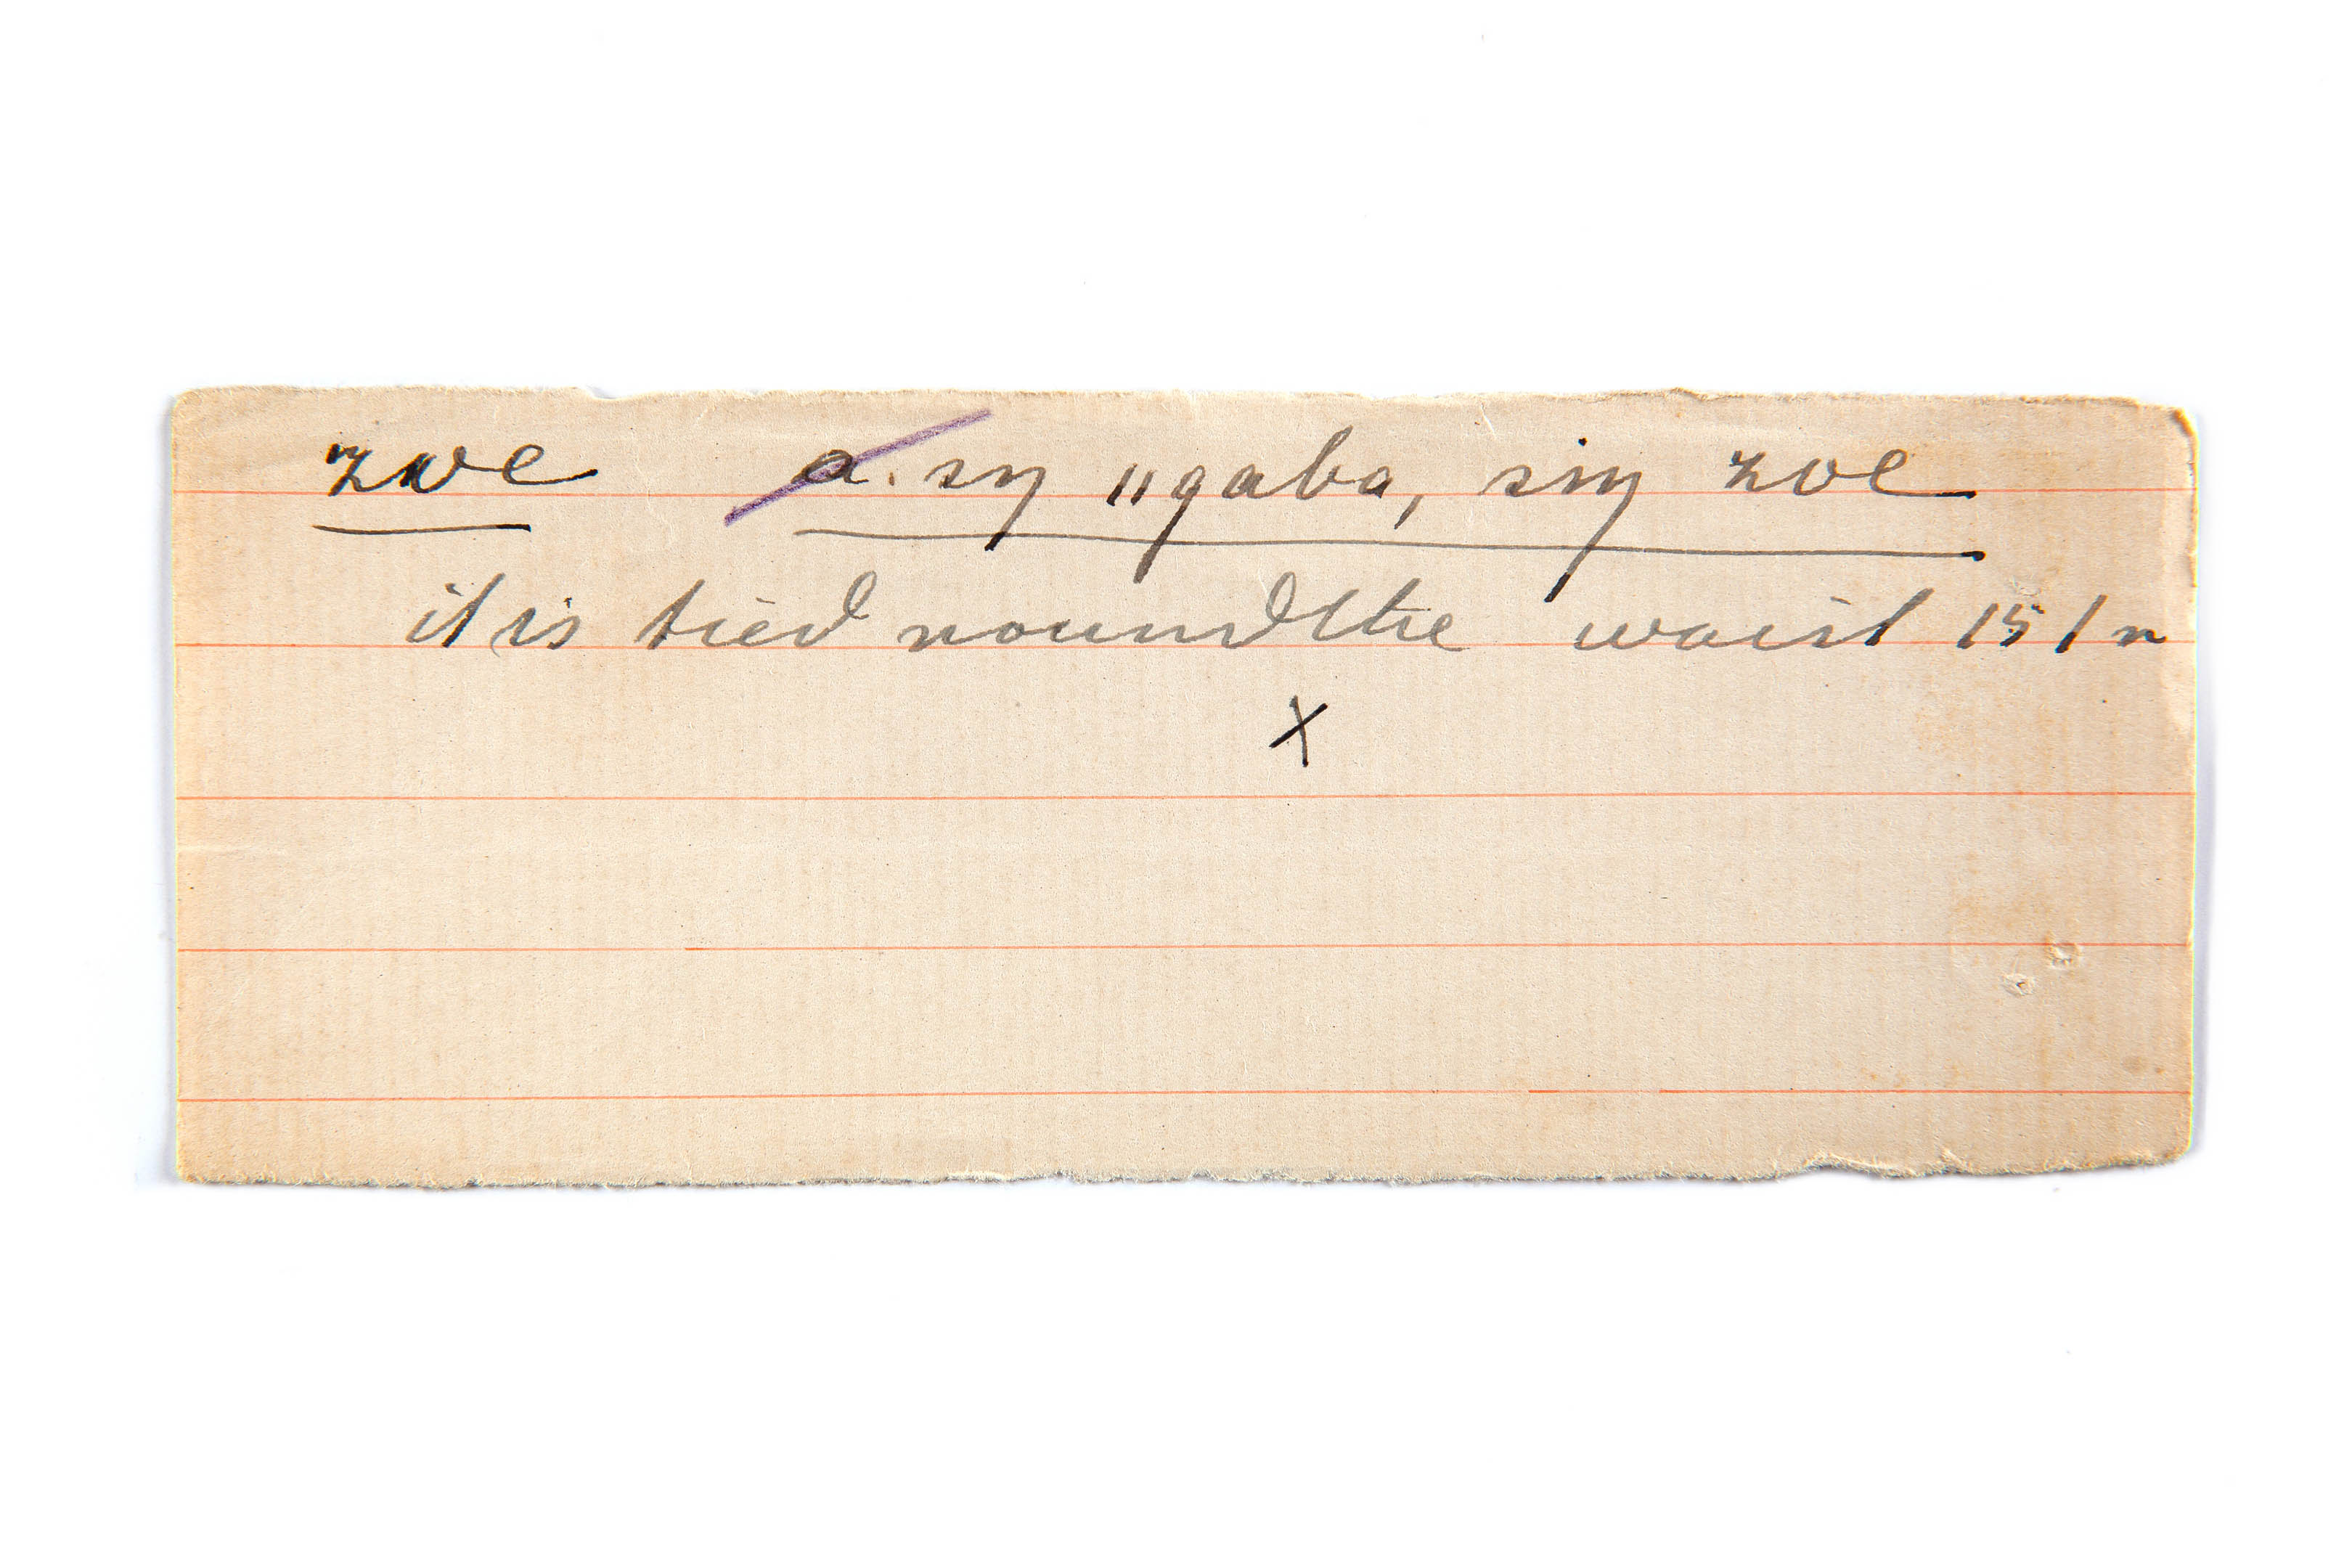 zoe a. sŋ ǁgaba, siŋ zoe
it is tied round the waist 151 n
x